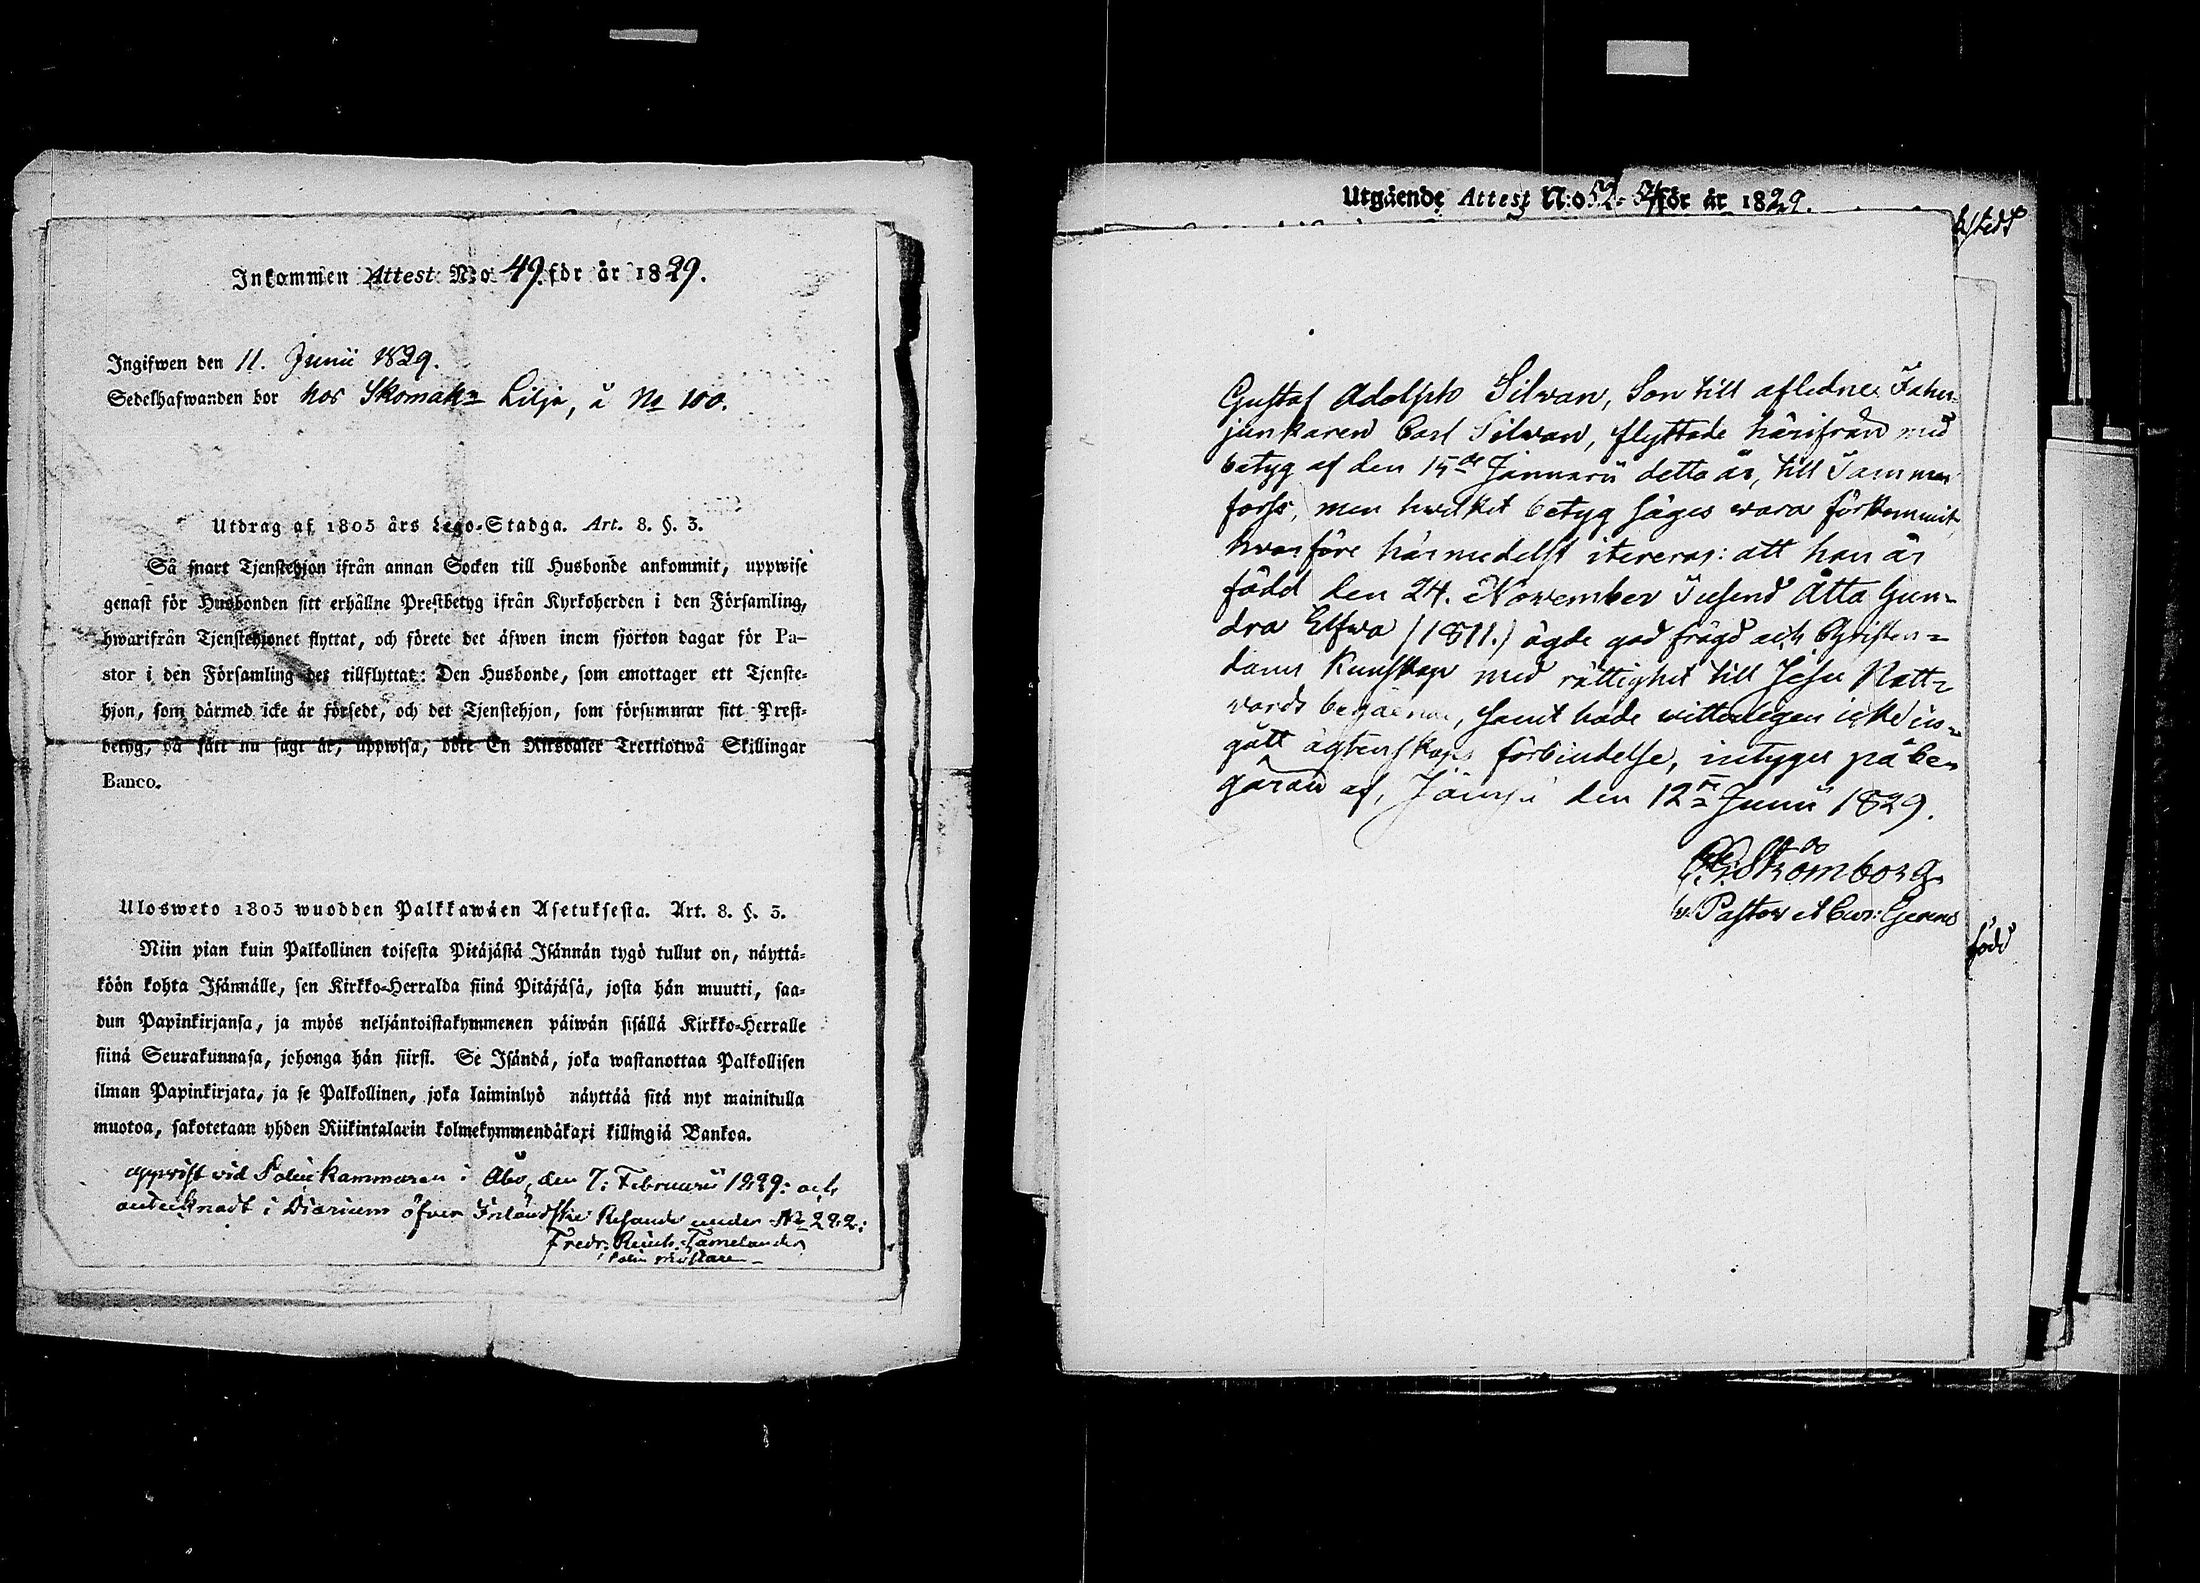 Inkommen Attest N:o 49. för år 1829.
Ingifwen den 11. Junii 1829.
Sedelhafwanden bor hos Skomak:n Lilja, å No 100.
Utdrag af 1805 års Lego-Stadga. Art. 8. §. 3.
Så snart Tjenstehjon ifrån annan Socken till Husbonde ankommit, uppwise
genast för Husbonden sitt erhållne Prestbetyg ifrån Kyrkoherden i den Församling,
hwarifrån Tjenstehjonet flyttat, och förete det äfwen inom fjorton dagar för Pa-
stor i den Församling det tillflyttat: Den Husbonde, som emottager ett Tjenste-
hjon, som därmed icke är försedt, och det Tjenstehjon, som försummar sitt Prest-
betyg, på sätt nu sagt är, uppwisa, böte En Riksdaler Trettiotwå Skillingar
Banco.
Ulosweto 1805 wuodden Palkkawäen Asetuksesta. Art. 8. §. 3.
Niin pian kuin Palkollinen toisesta Pitäjästä Isännän tygö tullut on, näyttä-
köön kohta Isännälle, sen Kirkko-Herralda siinä Pitäjäsä, josta hän muutti, saa-
dun Papinkirjansa, ja myös neljäntoistakymmenen päiwän sisällä Kirkko-Herralle
siinä Seurakunnasa, johonga hän siirsi. Se Isändä, joka wastanottaa Palkollisen
ilman Papinkirjata, ja se Palkollinen, joka laiminlyö näyttää sitä nyt mainitulla
muotoa, sakotetaan yhden Riikintalarin kolmekymmendäkaxi killingiä Bankoa.
uppvist vid Poliskammaren i Åbo, den 7: Februarii 1829: och
antecknadt i Diarium öfver Inländske Resande under No 292:
Fredr. Reinh. Tamelander
Polismästare
Utgående Attest N:o 52. för år 1829.
Gustaf Adolph Silvan, Son till aflidne Fahn-
junkaren Carl Silvan, flyttade härifrån med
betyg af den 15de Januarii detta år, till Tammer
forss, men hvilket betyg säges wara förkommit
hvarföre härmedelst itereras: att han är
född den 24. November Tusend Åtta Hun-
dra Elfwa (1811.) ägde god frägd och Christen-
doms kunskap med rättighet till Jesu Natt-
vards begående, samt hade witterligen icke in-
gått ägtenskaps förbindelse, intygas på be-
gäran af, Jämsä den 12te Junii 1829.
Strömborg
v. Pastor
född